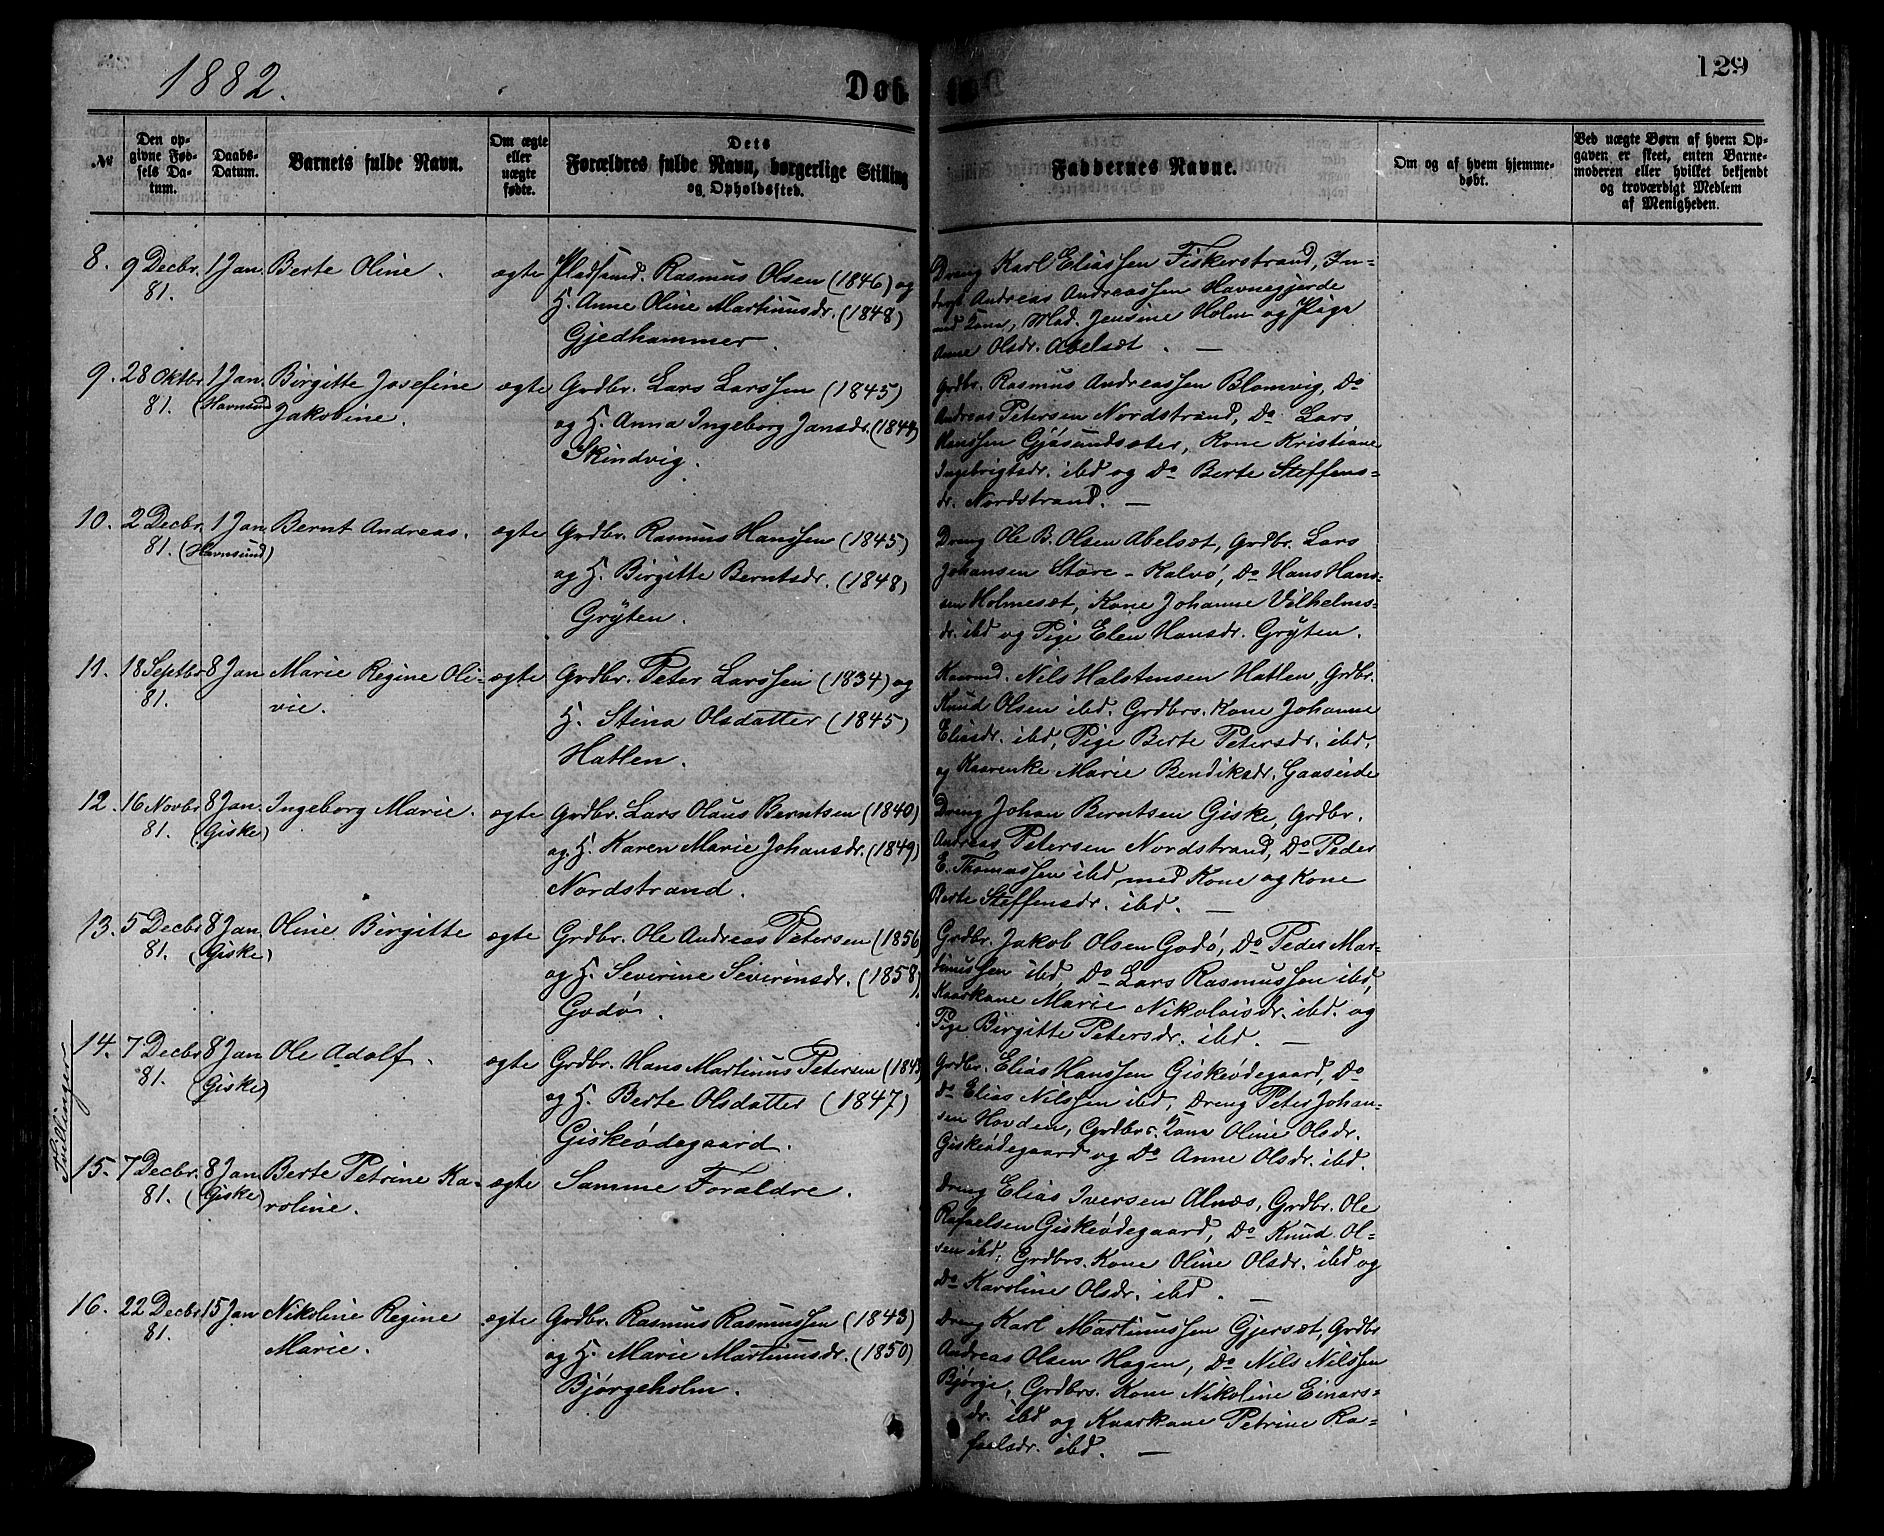 1882.
Døb
129
№
Den opgivne Fødsels Datum.
Daabs-Datum.
Barnets fulde Navn.
Om ægte eller uægte fødte.
Dets Forældres fulde Navn, borgerlige Stilling og Opholdssted.
Faddernes Navne.
Om og af hvem hjemmedøbt.
Ved uægte Børn af hvem Opgaven er skeet, enten Barnemoderen eller hvilket bekjendt og troværdigt Medlem af Menigheden.
8. 9 Decbr. 81. 1 Jan. Berte Oline. ægte
Pladsmd. Rasmus Olsen (1846) og
H. Anne Oline Martinusdr. (1848)
Gjedhammer.
Dreng Karl Eliassen Fiskerstrand, In-
Andreas Andreassen Havnegjerde
med Kone, Mad. Jensine Holm og Pige
Anne Olsdr. Abelsæt. —
9. 28 Oktbr. 81. 1 Jan. (Havnsund) Birgitte Josefine
Jakobine. ægte
Grdbr. Lars Larssen (1845)
og H. Anna Ingeborg Jansdr. (1844)
Skindvig.
Grdbr. Rasmus Andreassen Blomvig, Do
Andreas Petersen Nordstrand, Do Lars
Hanssen Gjøsundsæter, Kone Kristiane
Ingebrigtsdr. ibd og Do Berte Steffens-
dr. Nordstrand. —
10. 2 Decbr. 81. 1 Jan. (Havnsund) Bernt Andreas. ægte
Grdbr. Rasmus Hanssen (1845)
og H. Birgitte Berntsdr. (1848)
Grýten.
Dreng Ole B. Olsen Abelsæt, Grdbr. Lars
Johansen Støre-Kalvø, Do Hans Hans-
sen Holmesæt, Kone Johanne Vilhelms-
dr. ibd og Pige Elen Hansdr. Grýten.
11. 18 Septbr 81. 8 Jan Marie Regine Oli-
vie. ægte
Grdbr. Peter Larssen (1834) og
H. Stina Olsdatter (1845)
Hatlen.
Kaarmd. Nils Halstensen Hatlen, Grdbr.
Knud Olsen ibd. Grdbrs. Kone Johanne
Eliasdr. ibd, Pige Berte Petersdr. ibd.
og Kaarenke Marie Bendiksdr. Gaaseide
12. 16 Novbr. 81. 8 Jan. (Giske) Ingeborg Marie. ægte
Grdbr. Lars Olaus Berntsen (1840)
og H. Karen Marie Johansdr. (1849)
Nordstrand.
Dreng Johan Berntsen Giske, Grdbr.
Andreas Petersen Nordstrand, Do Peder
E. Thomassen ibd, med Kone og Kone
Berte Steffensdr. ibd. —
13. 5 Decbr 81. 8 Jan. (Giske) Oline Birgitte ægte
Grdbr. Ole Andreas Petersen (1856)
og H. Severine Severinsdr. (1858)
Godø.
Grdbr. Jakob Olsen Godø, Do Peder Mar-
tinussen ibd, Do Lars Rasmussen ibd,
Kaarkone Marie Nikolaisdr. ibd. og
Pige Birgitte Petersdr. ibd. —
Tvillinger
14. 7 Decbr 81. 8 Jan (Giske) Ole Adolf. ægte
Grdbr. Hans Martinus Petersen (1843)
og H. Berte Olsdatter (1847)
Giskeødegaard.
Grdbr. Elias Hanssen Giskeødegaard, Do
Do Elias Nilssen ibd, Dreng Peter Johan-
sen Hovden, Grdbrs. Kone Oline Olsdr.
Giskeødegaard og Do Anne Olsdr. ibd.
15. 7 Decbr. 81. 8 Jan. (Giske) Berte Petrine Ka-
roline. ægte
Samme Forældre.
Dreng Elias Iversen Alnæs, Grdbr. Ole
Rafaelsen Giskeødegaard, Do Knud Ol-
sen ibd; Grdbrs. Kone Oline Olsdr. ibd og
Do Karoline Olsdr. ibd. —
16. 22 Decbr 81. 15 Jan Nikoline Regine
Marie. ægte
Grdbr. Rasmus Rasmussen (1843)
og H. Marie Martinusdr. (1850)
Bjørgeholm.
Dreng Karl Martinussen Gjersæt, Grdbr
Andreas Olsen Hagen, Do Nils Nilssen
Bjørge, Grdbrs. Kone Nikoline Einars-
dr. ibd og Kaarkone Petrine Ra-
faelsdr. ibd. —